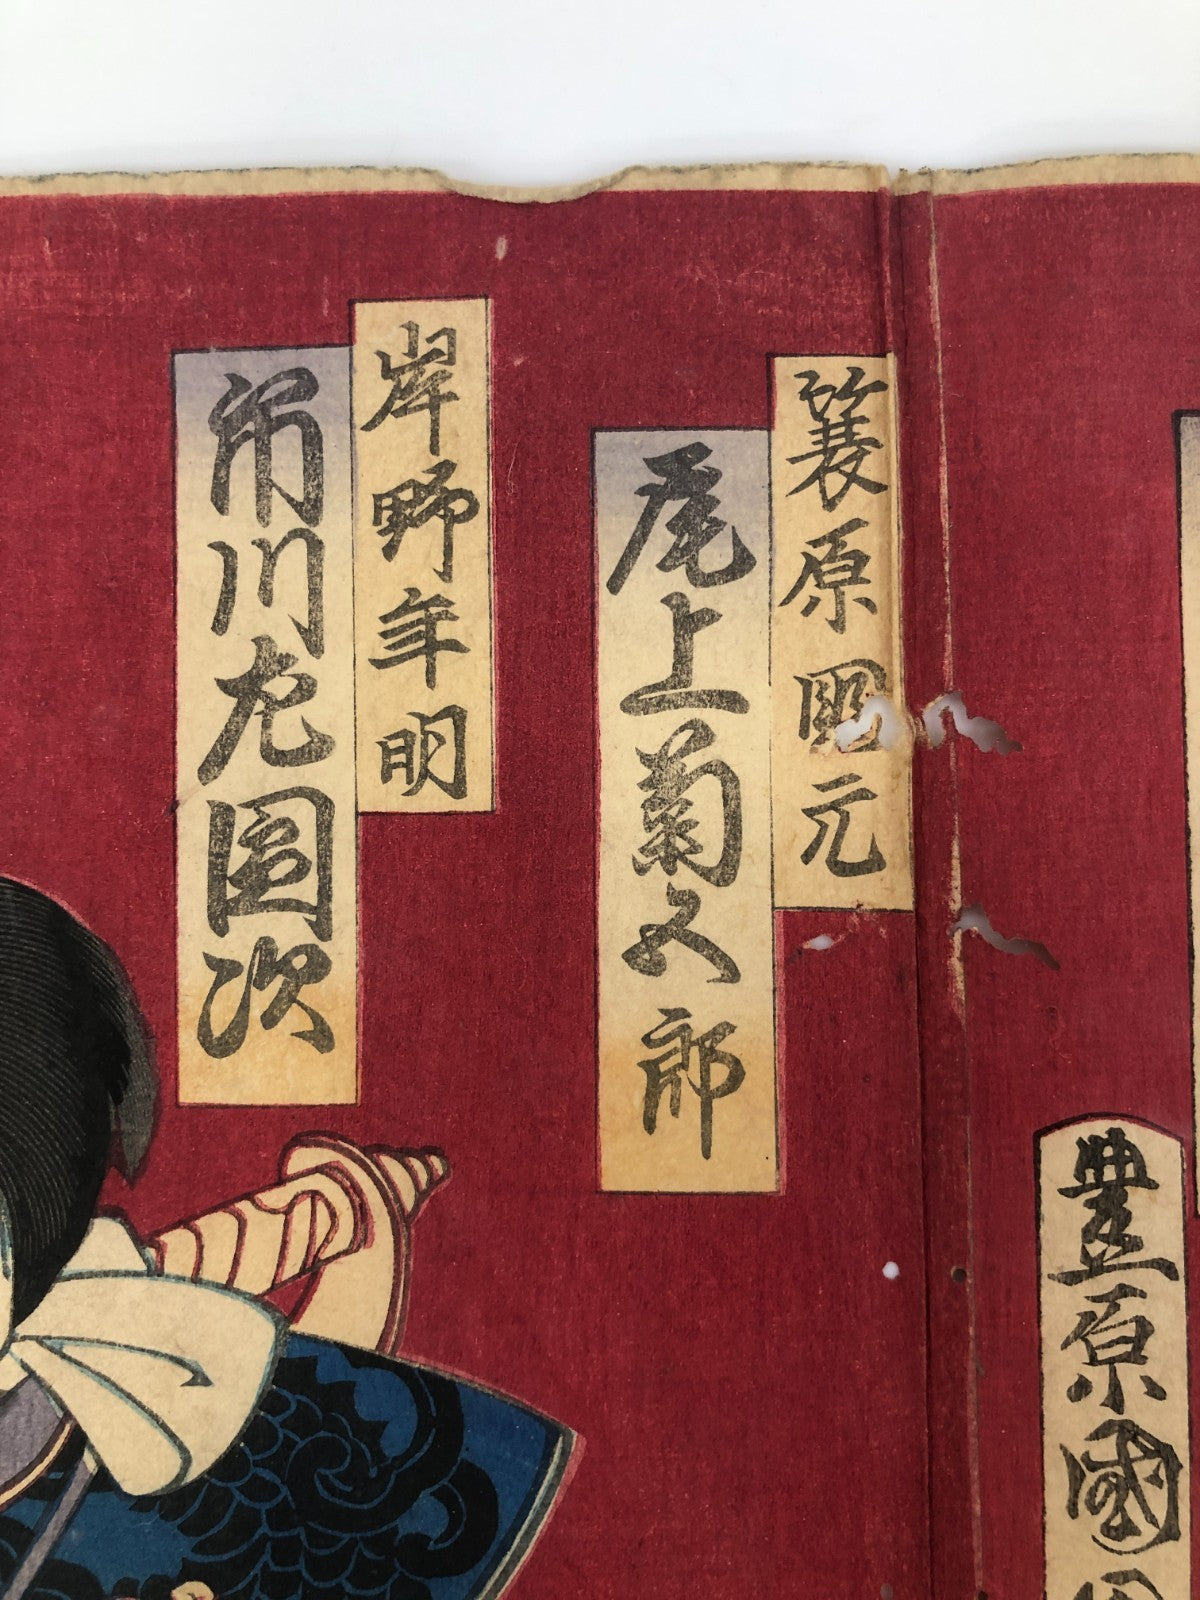 豊原國周
簑原國元
尾上菊五郎
岸野年明
市川左團次